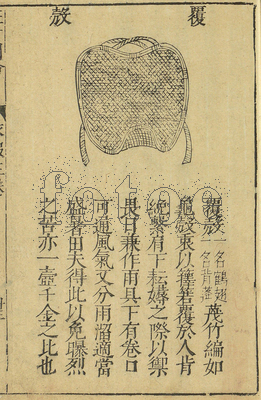 覆殼
覆殼一名鶴翅一名背蓬篾竹編如
龜殼裹以籜箬覆於人背
繩繫肩下耘耨之際以禦
畏日兼作雨具下有卷口
可通風氣又分雨溜適當
盛暑田夫得此以免曝烈
之苦亦一壺千金之比也
fotoe